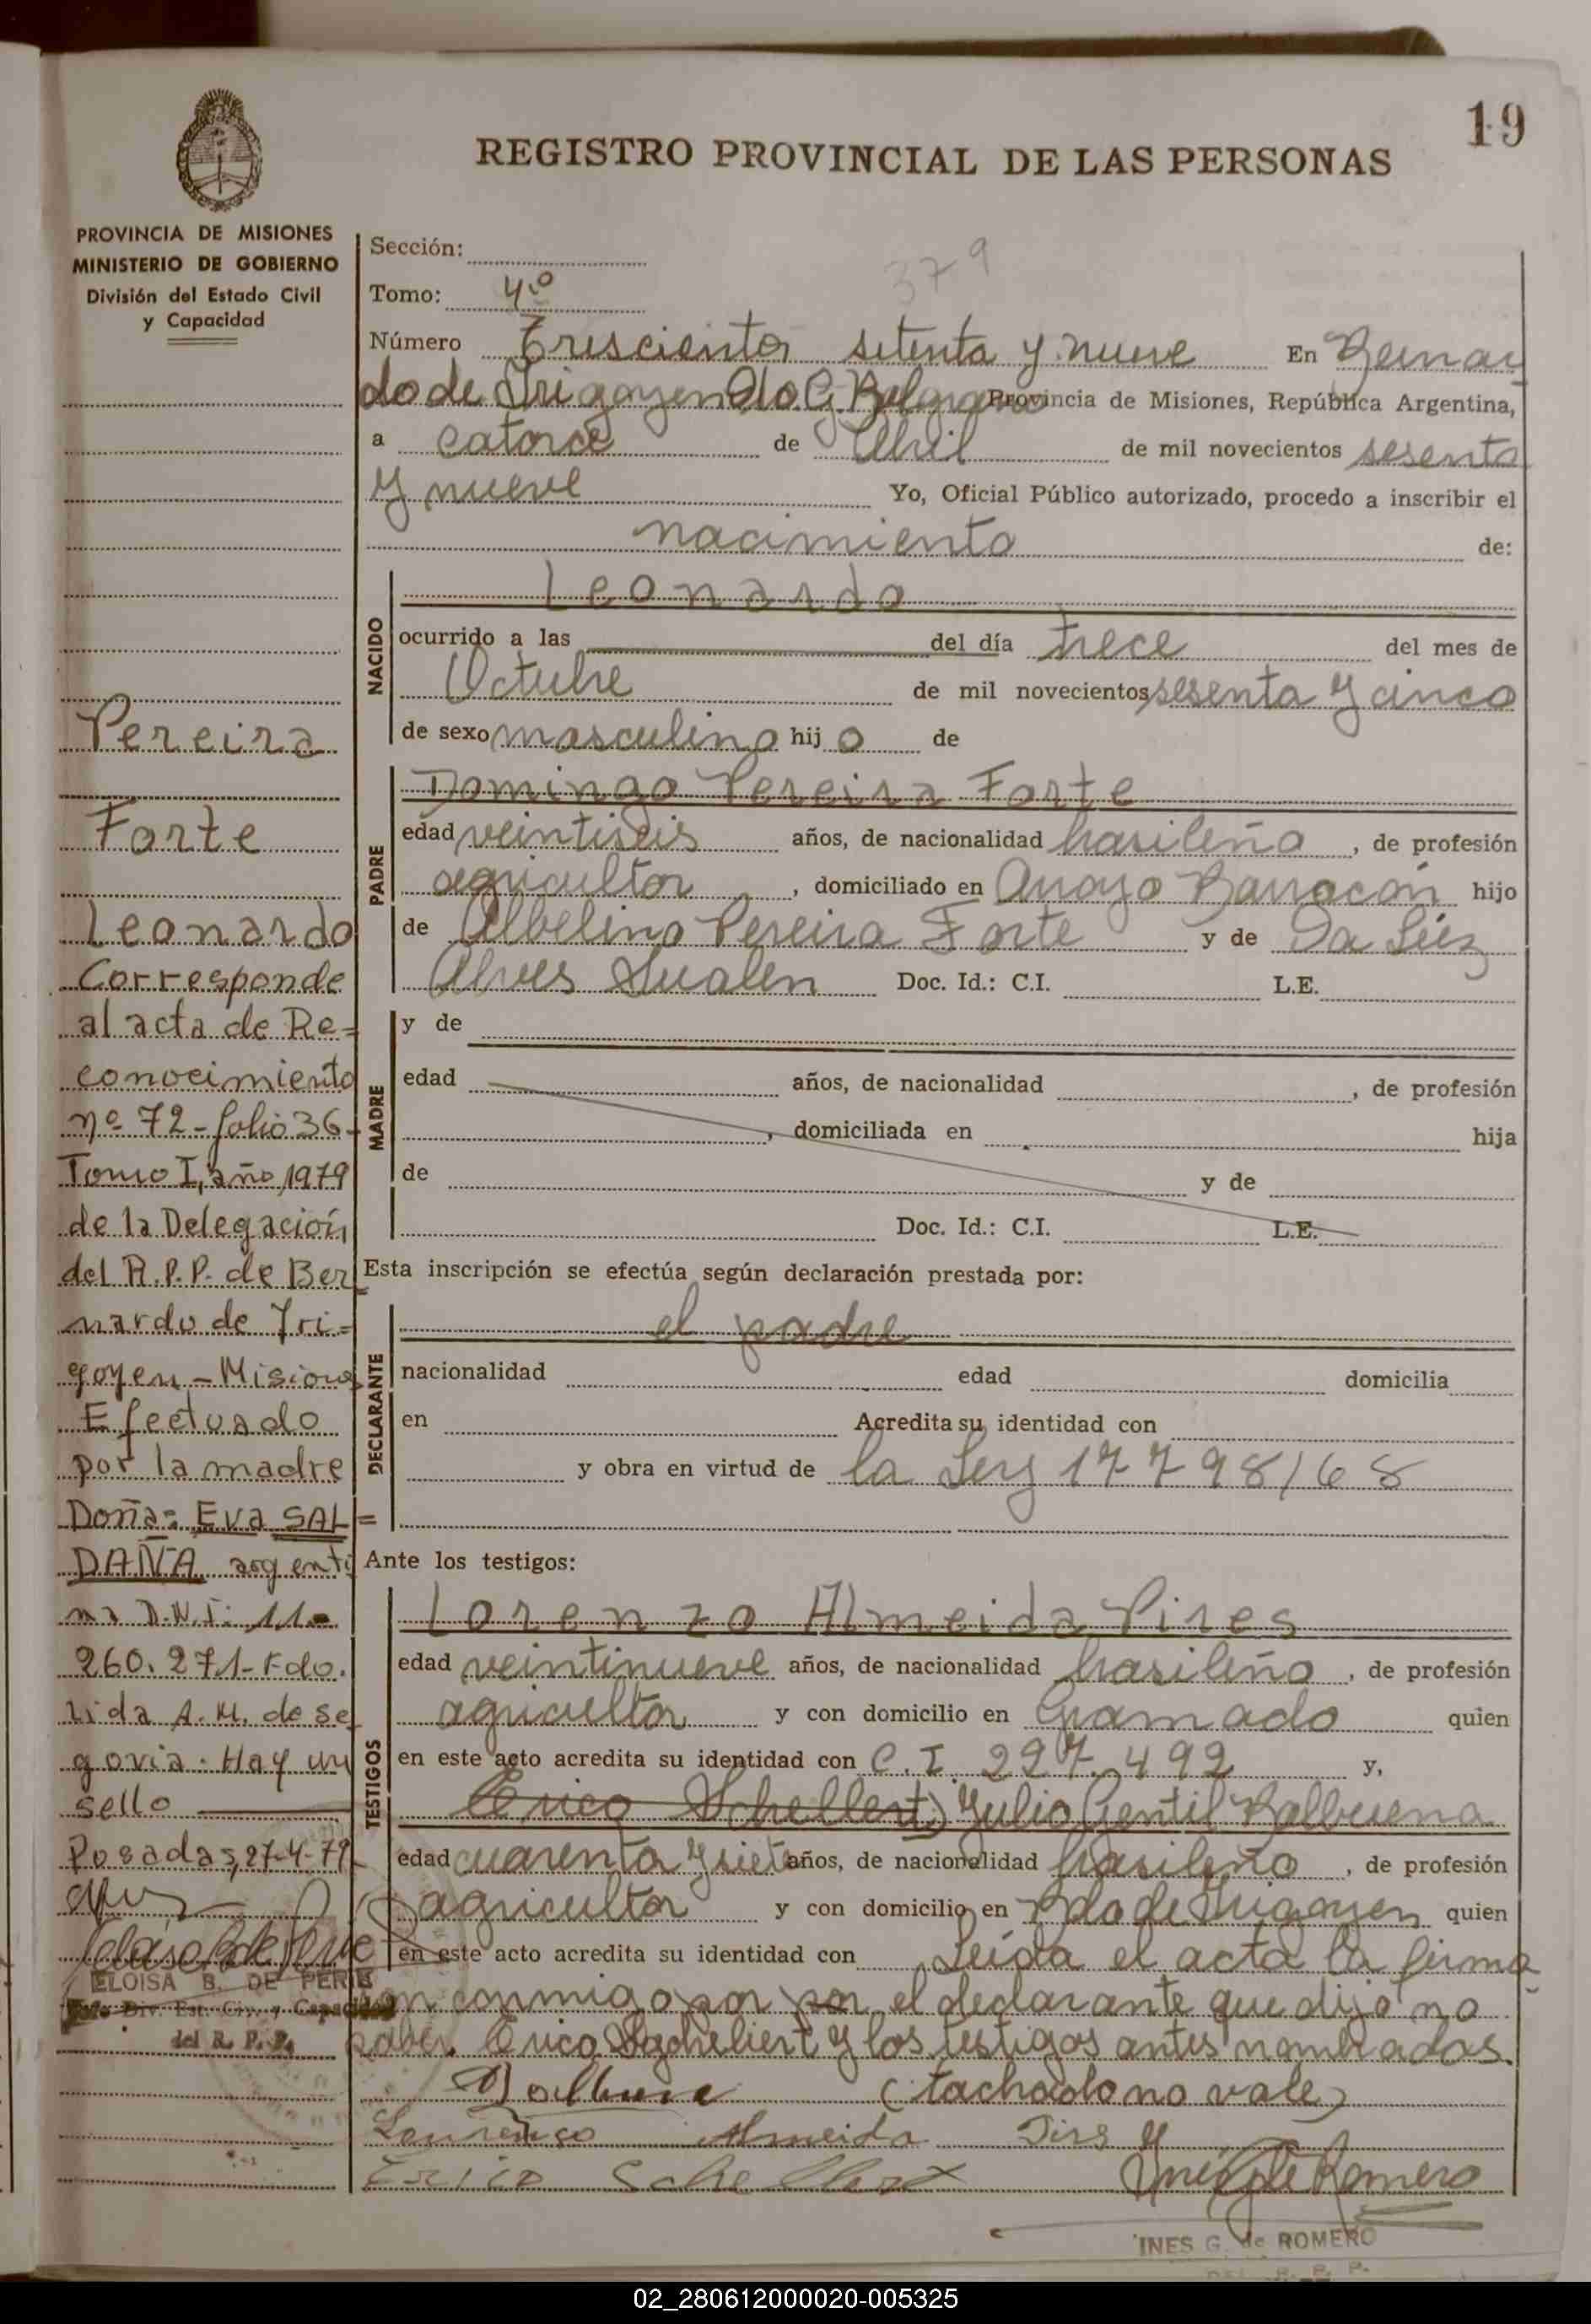 19
REGISTRO PROVINCIAL DE LAS PERSONAS
PROVINCIA DE MISIONES
MINISTERIO DE GOBIERNO
División del Estado Civil
y Capacidad
Pereira
Forte
Leonardo
Corresponde
al acta de Re=
conocimiento
nº 72 - folio 36 -
Tomo I, año 1979
de la Delegación
del R.P.P. de Ber=
nardo de Iri=
goyen - Misiones
Efectuado
por la madre
Doña: Eva SAL=
DAÑA argenti
na D.N.I. 11.
260.271 - Fdo.
Lida A. M. de Se
govia. Hay un
sello
Posadas, 27-4-79
ELOISA B. DE PERIE
Div. Est. Civ. y Capacidad
del R. P. P.
379
Sección:
Tomo: 4º
Número Trescientos setenta y nueve En Bernar
do de Irigoyen Dto. G. Belgrano Provincia de Misiones, República Argentina,
a catorce de Abril de mil novecientos sesenta
y nueve Yo, Oficial Público autorizado, procedo a inscribir el
nacimiento de:
NACIDO
Leonardo
ocurrido a las del día trece del mes de
Octubre de mil novecientos sesenta y cinco
de sexo masculino hijo de
PADRE
Domingo Pereira Forte
edad veintiseis años, de nacionalidad brasileña, de profesión
agricultor, domiciliado en Arroyo Barracón hijo
de Albelino Pereira Forte y de Da Liz
Alves Doc. Id.: C.I. L.E.
MADRE
y de
edad años, de nacionalidad , de profesión
, domiciliada en hija
de y de
Doc. Id.: C.I. L.E.
Esta inscripción se efectúa según declaración prestada por:
DECLARANTE
el padre
nacionalidad edad domicilia
en Acredita su identidad con
y obra en virtud de la Ley 17798/68
Ante los testigos:
TESTIGOS
Lorenzo Almeida Pires
edad veintinueve años, de nacionalidad brasileño, de profesión
agricultor y con domicilio en Gramado quien
en este acto acredita su identidad con C.I. 297.492 y,
Erico Schellert) Julio Gentil Balbuena
edad cuarenta y siete años, de nacionalidad brasileño, de profesión
agricultor y con domicilio en Bdo de Irigoyen quien
en este acto acredita su identidad con Leída el acta la firma
n conmigo por por el declarante que dijo no
saber Erico Sacheliert y los testigos antes nombrados.
(tachado no vale)
Lourenço Almeida Pires
Erico Schellert
INES G. de ROMERO
DEL R. P. P.
02_280612000020-005325